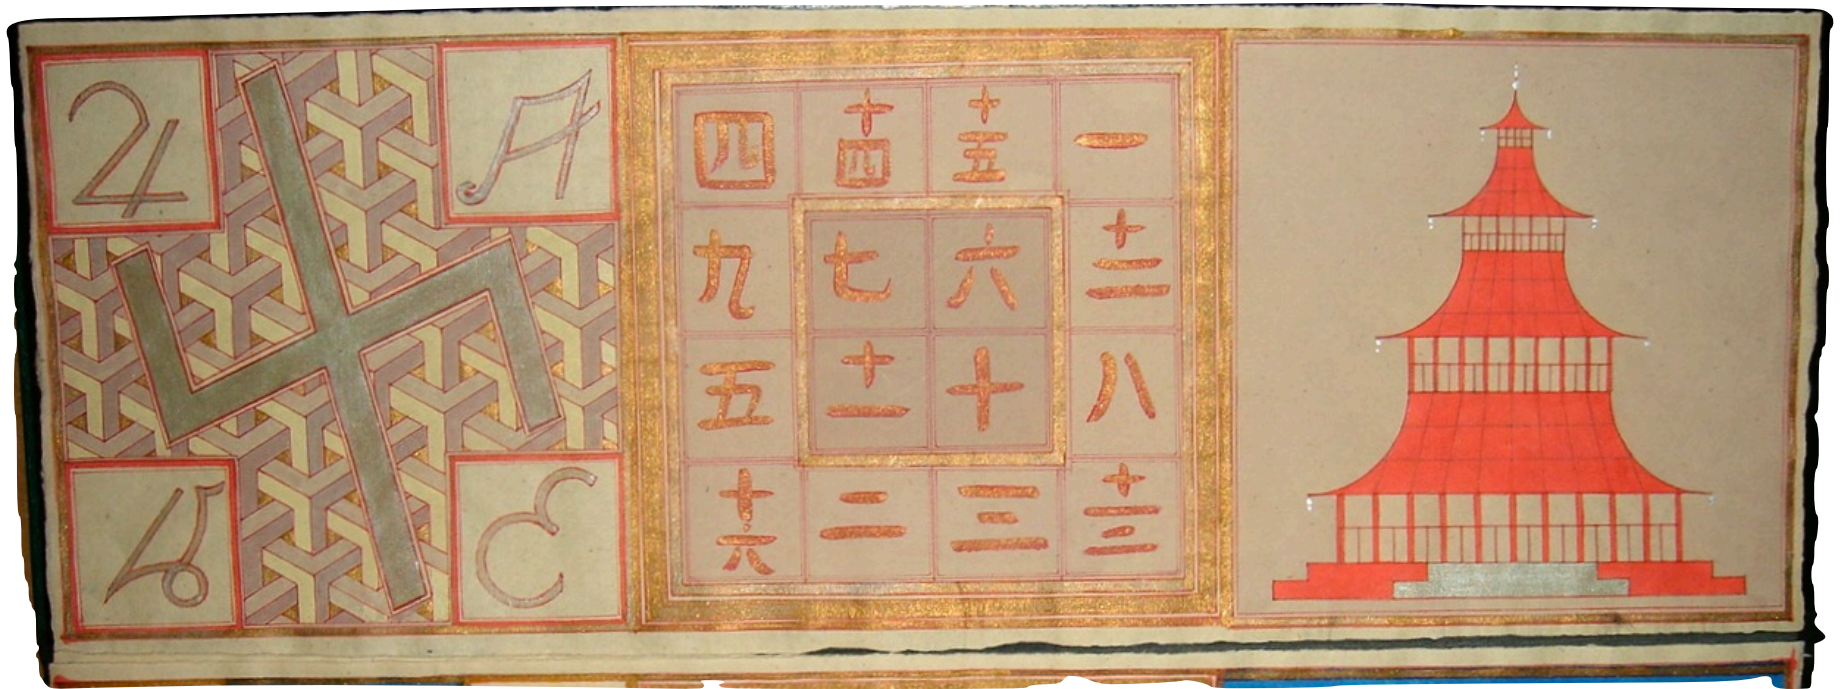 四 十四 十五 一
九 七 六 十二
五 十一 十 八
十六 二 三 十三